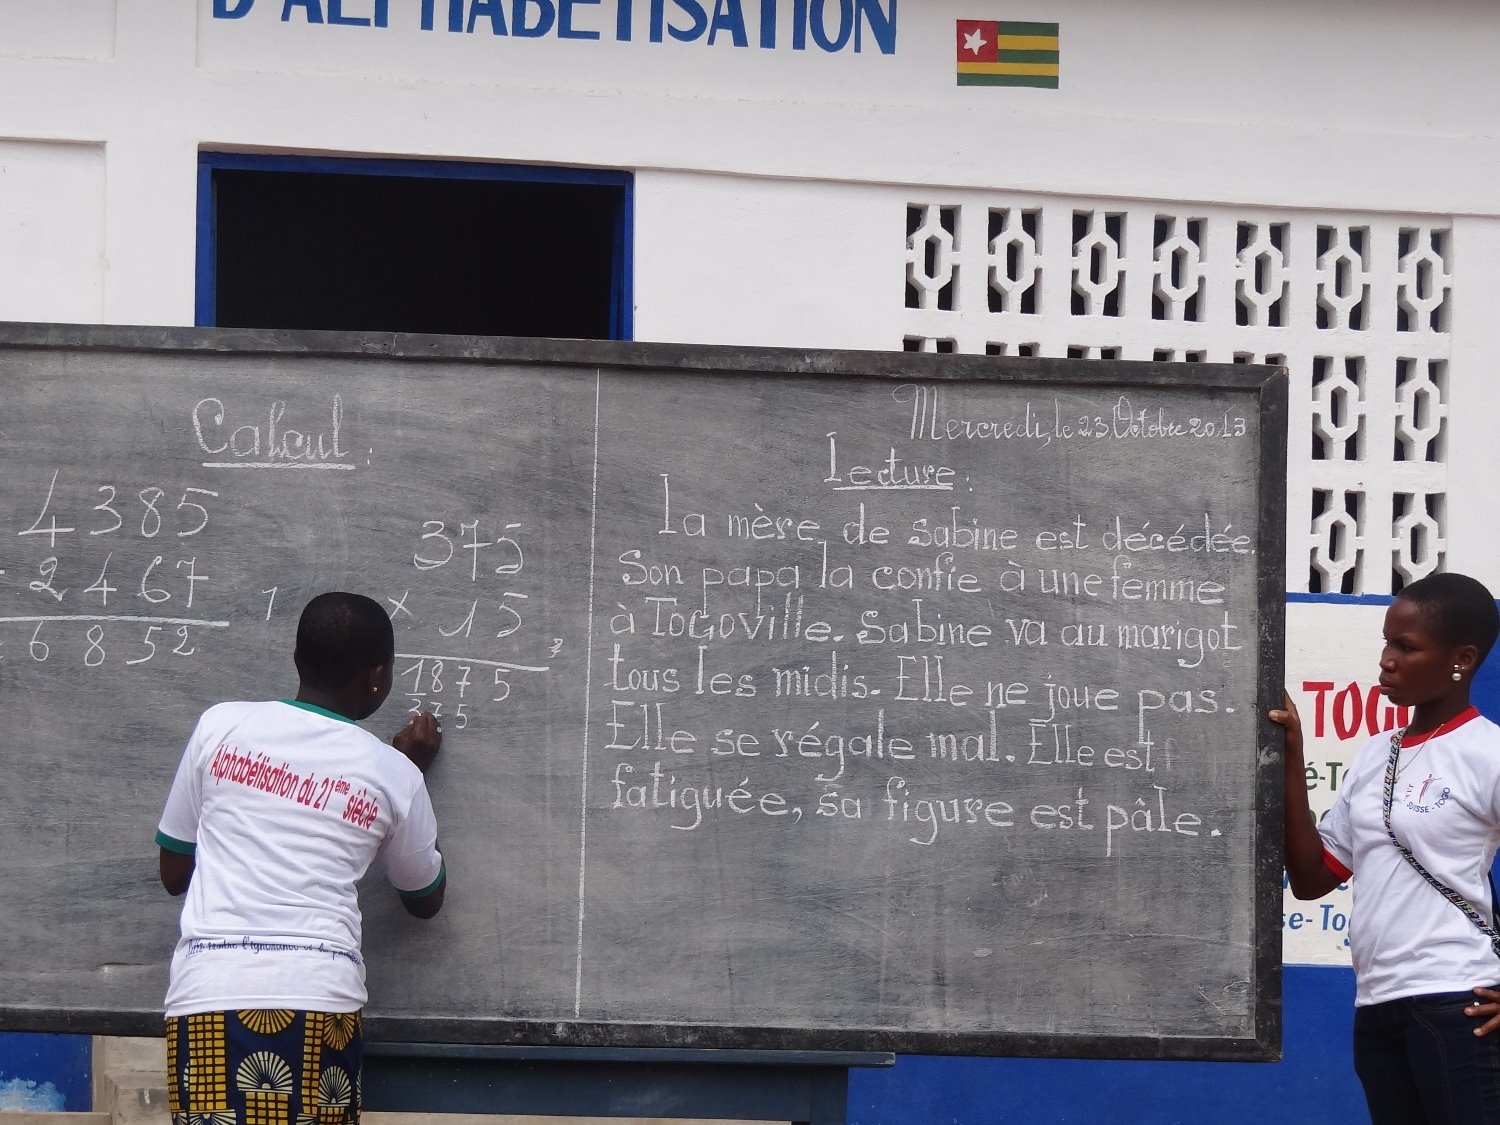 D'ALPHABÉTISATION
Calcul:
4385
2467
6852
1
375
x 15
1875
375
Mercredi, le 23 Octobre 2013
Lecture:
La mère de Sabine est décédée.
Son papa la confie à une femme
à TOGOville. Sabine va au marigot
tous les midis. Elle ne joue pas.
Elle se régale mal. Elle est
fatiguée, sa figure est pâle.
Alphabétisation du 21ème siècle
l'ignorance et la
TOGO
SUISSE - TOGO
se-Tog